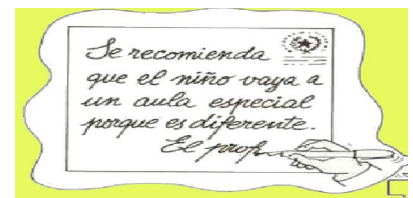 Se recomienda
que el niño vaya a
un aula especial
porque es diferente.
El prof